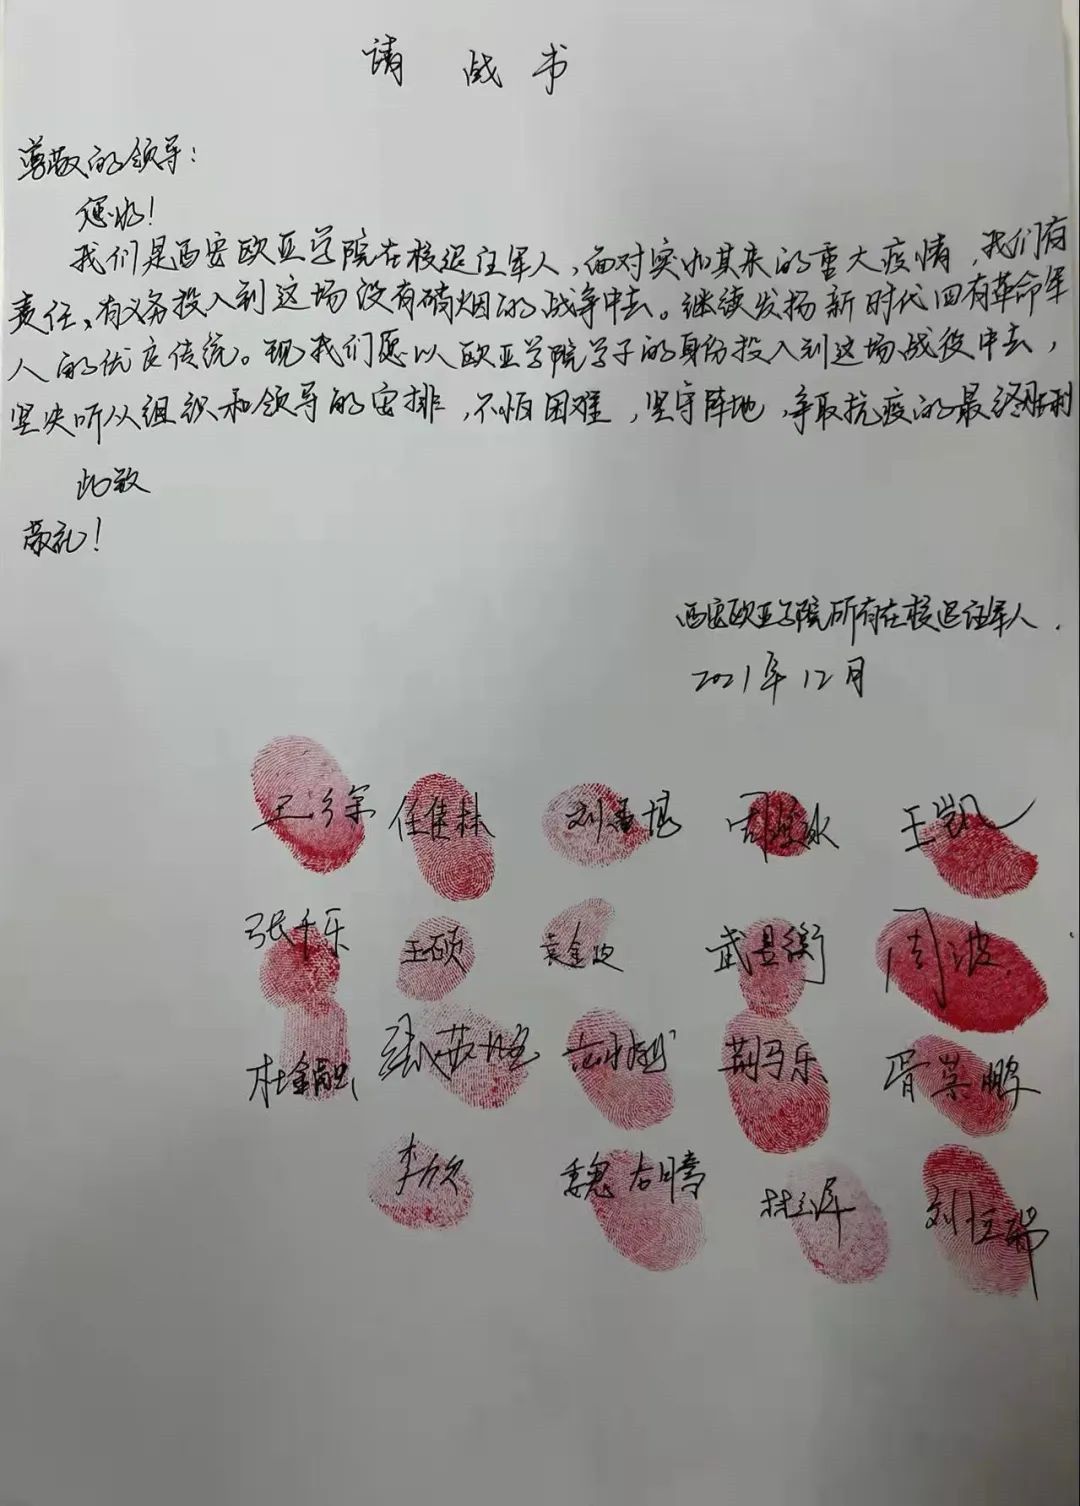 请战书
尊敬的领导：
您好！
我们是西安欧亚学院在校退役军人，面对突如其来的重大疫情，我们有
责任、有义务投入到这场没有硝烟的战争中去。继续发扬新时代四有革命军
人的优良传统。现我们愿以欧亚学院学子的身份投入到这场战役中去，
坚决听从组织和领导的安排，不怕困难，坚守阵地，争取抗疫的最终胜利
此致
敬礼！
西安欧亚学院所有在校退役军人.
2021年12月
任佳林 王凯
张千乐 王硕 武昱衡 周波
杜鑫融 荆马乐 胥棠鹏
李欣